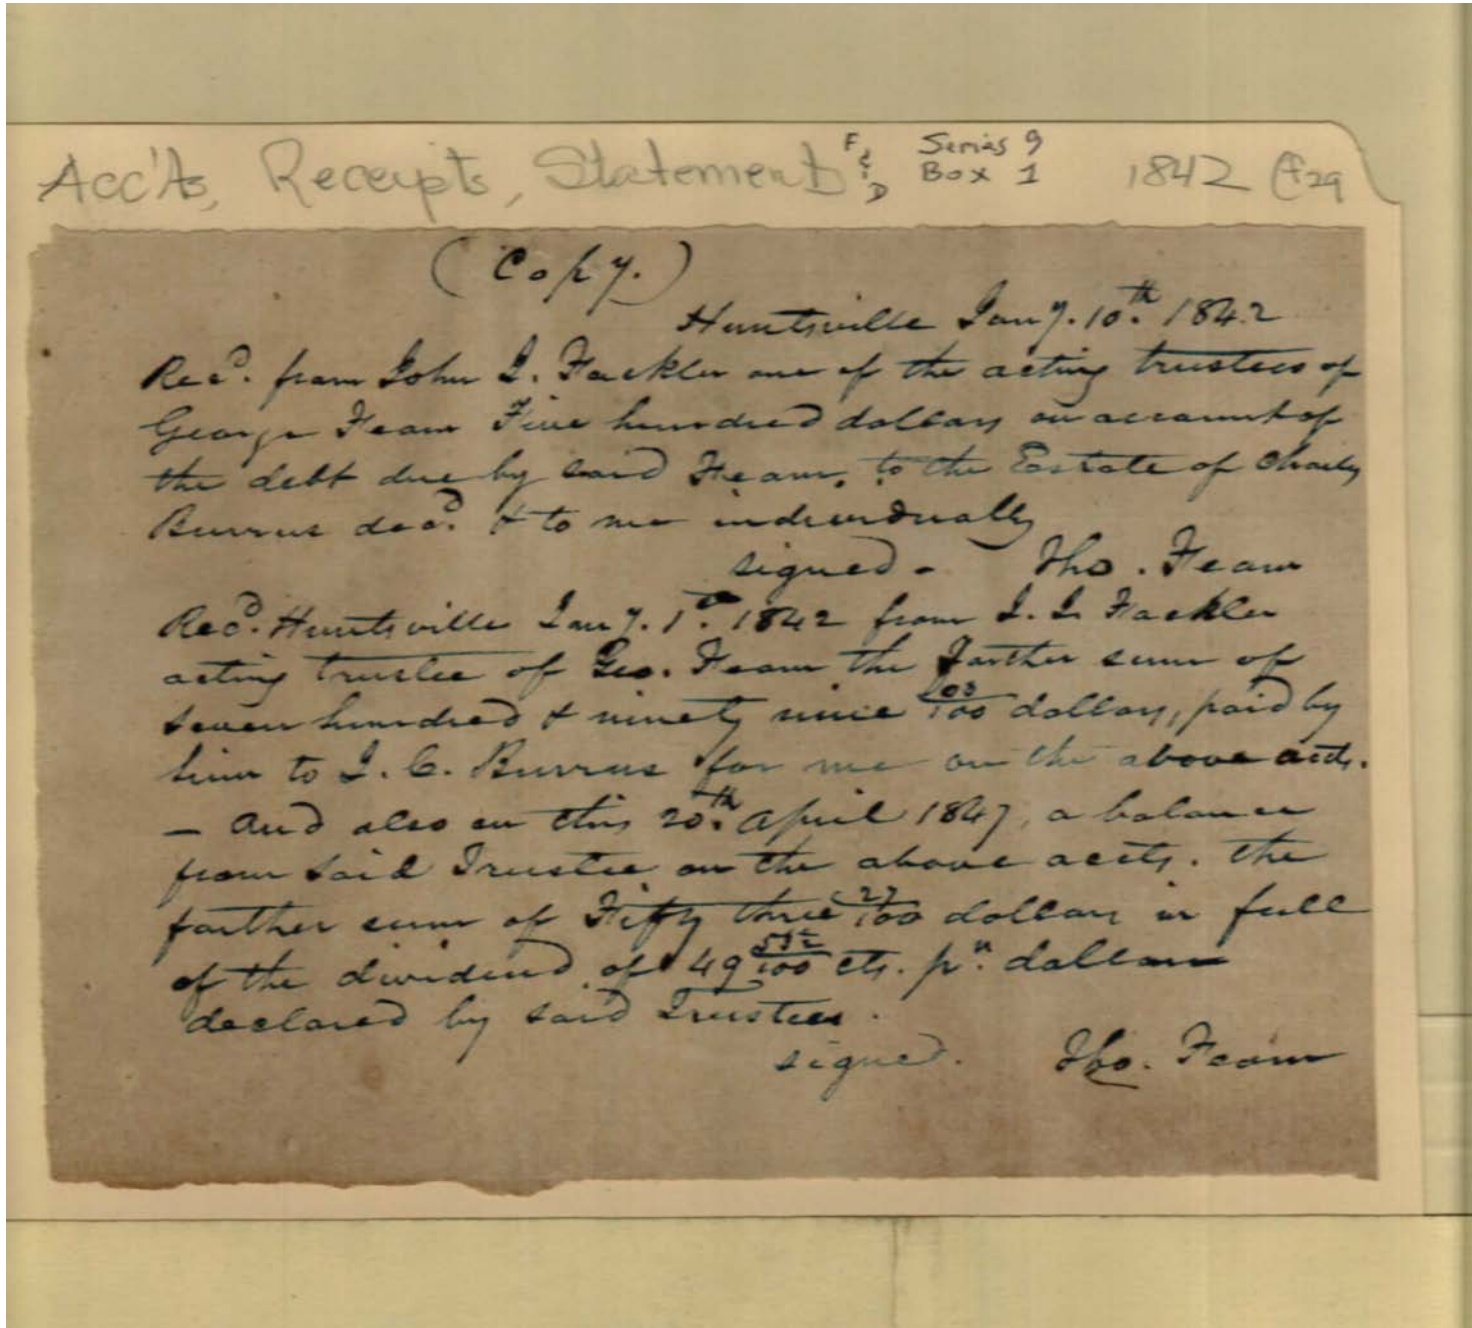 Acc'ts, Receipts, Statements F & D Series 9 Box 1 1842 (F29
(Copy.)
Huntsville Jany. 10th. 1842
Recd. from John J. Fackler one of the acting trustees of
George Fearn Five hundred dollars on account of
the debt due by said Fearn, to the Estate of Charles
Burrus decd. & to me individually
signed - Tho. Fearn
Recd. Huntsville Jany. 1st. 1842 from J. J. Fackler
acting trustee of Geo. Fearn the farther sum of
seven hundred & ninety nine 03/100 dollars, paid by
him to J. C. Burrus for me on the above accts.
- And also on this 20th. April 1847, a balance
from said Trustee on the above accts. the
farther sum of Fifty three 27/100 dollars in full
of the dividend of 49 552/100 cts. pr. dollar
declared by said Trustees.
signed. Tho. Fearn